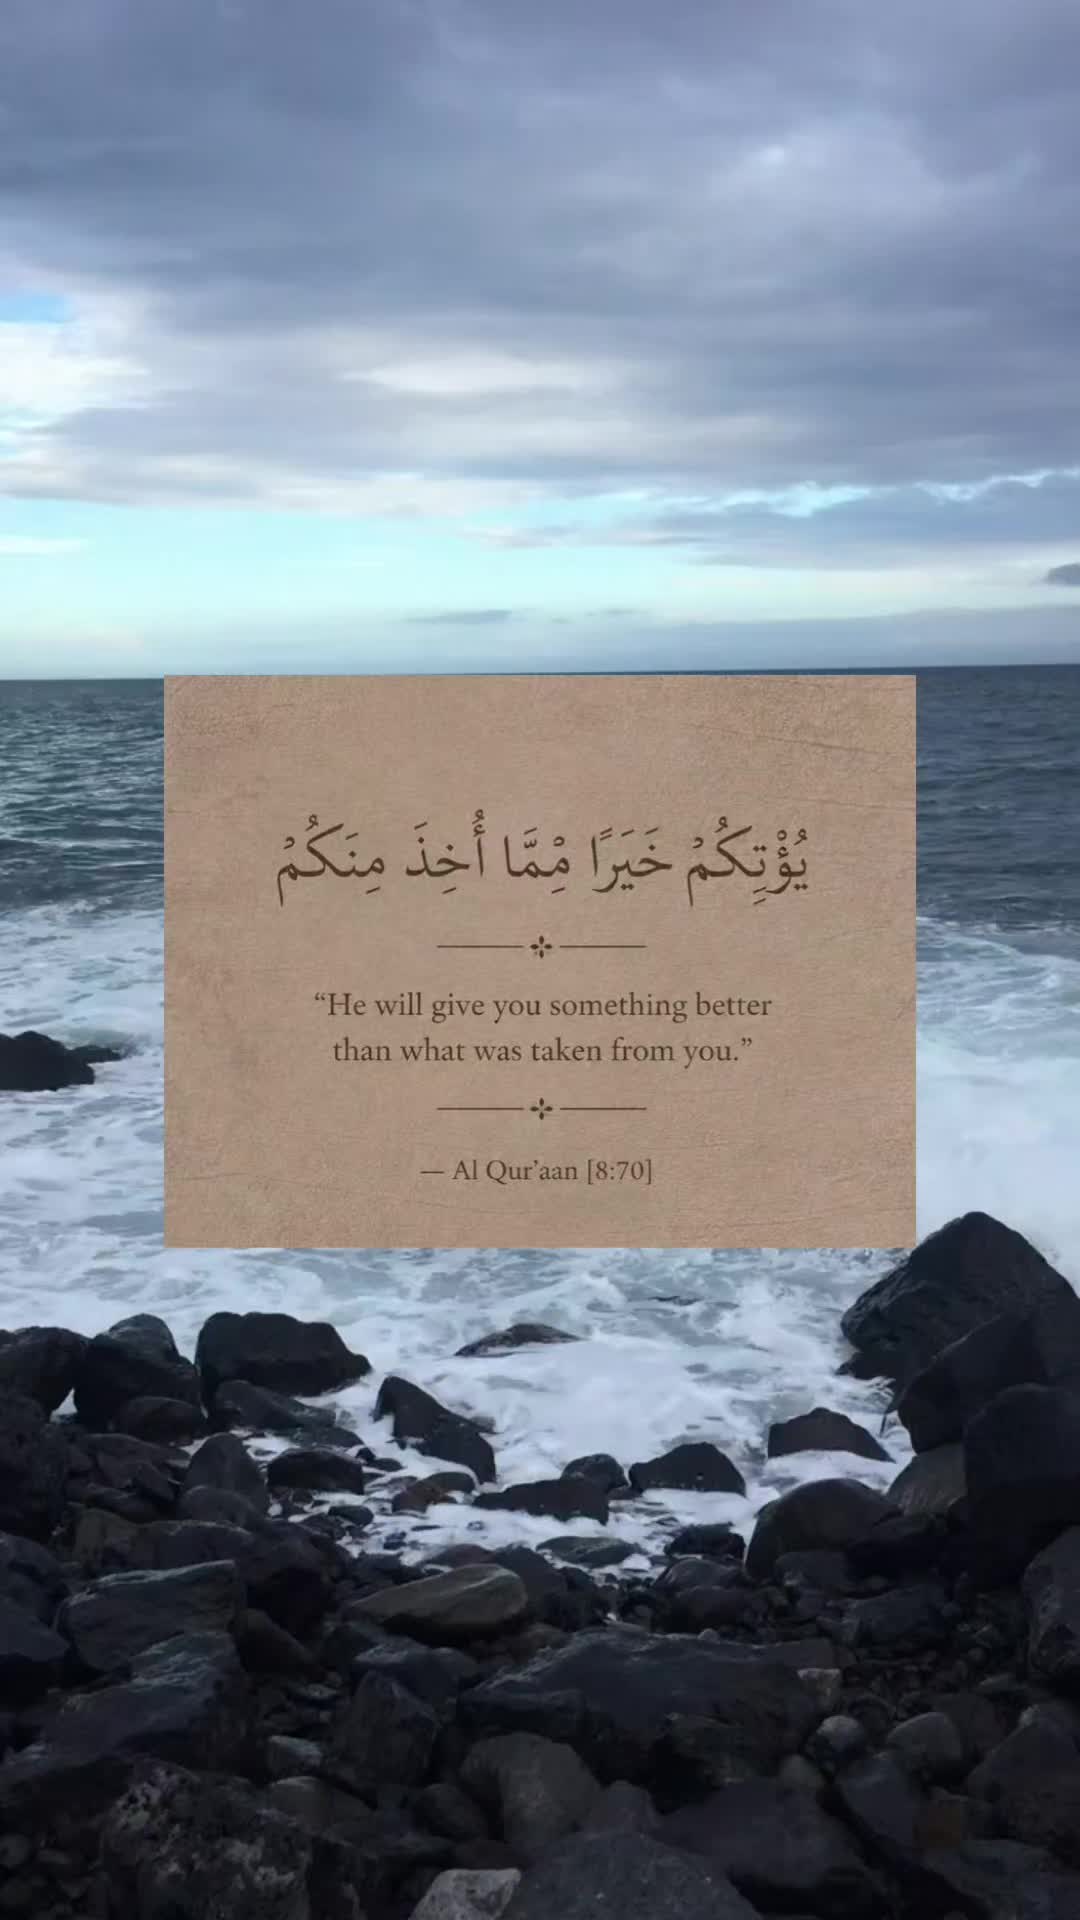 يُؤْتِكُمْ خَيَرًا مِْمَّا أُخِذَ مِنَكُمْ
“He will give you something better
than what was taken from you.”
— Al Qur’aan [8:70]